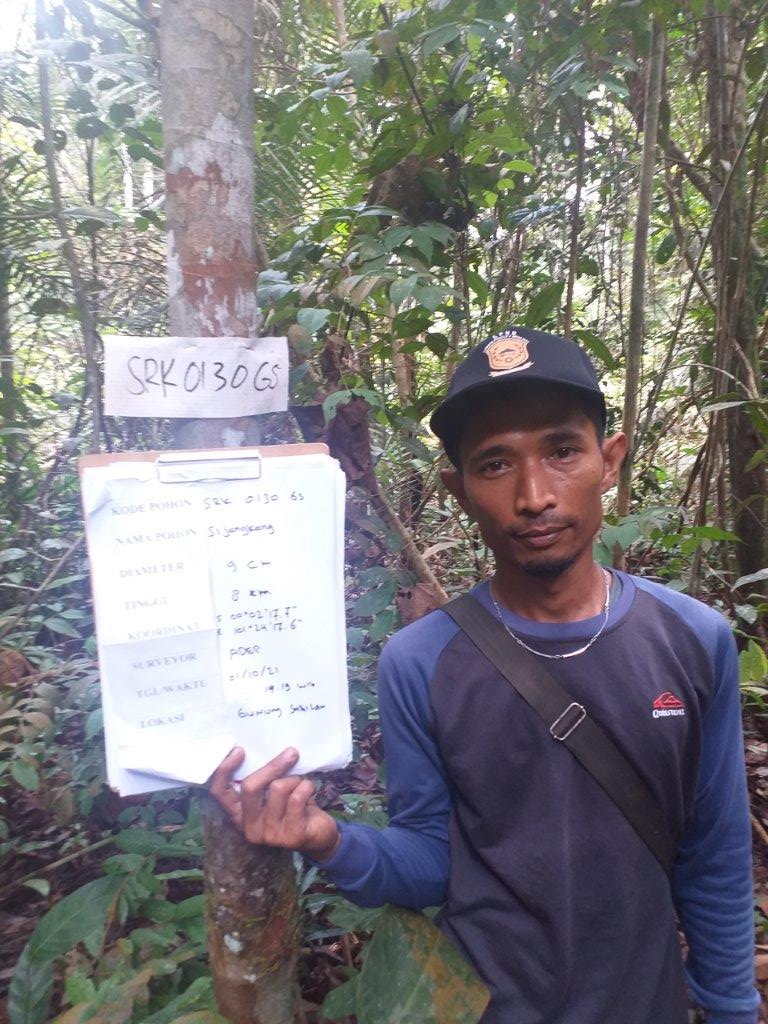 SRK 0130 GS
KODE POHON SRK 0130 GS
NAMA POHON Sijongkong
DIAMETER 9 cm
TINGGI 8 cm
KOORDINAT S 00°02'17.7"
E 101°24'17.6"
SURVEYOR ADEP
TGL/WAKTU 01/10/21
14:19 wib
LOKASI Gunung Sahilan